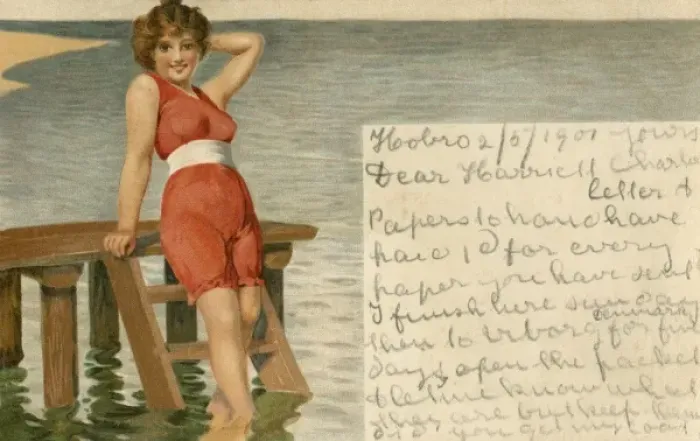 Hobro 2/5/1901 yours
Dear Harriett Charlo
letter &
Papers to hand have
paid 1D for every
paper you have sent
I finish here sunday
Denmark
then to Viborg for five
days open the packet
& let me know what
they are but keep them
did you get my coat